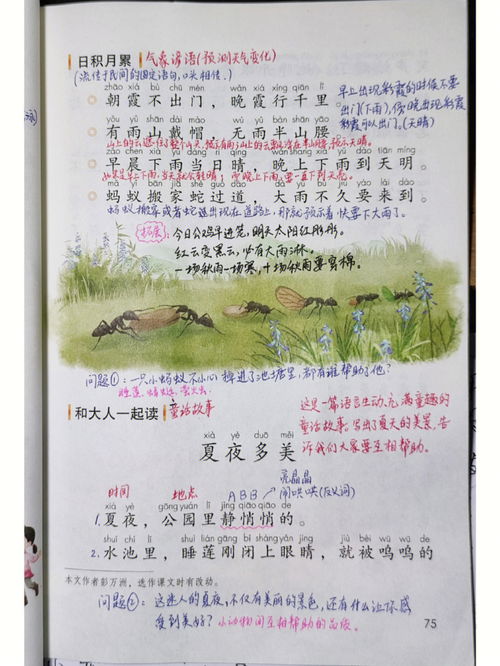 日积月累 气象谚语(预测天气变化)
(流传于民间的固定语句,口头相传.)
zhāo xiá bù chū mén wǎn xiá xíng qiān lǐ
朝霞不出门,晚霞行千里。
早上出现彩霞的时候不要
出门(下雨),傍晚出现彩霞
彩霞可以出门。(天晴)
yǒu yǔ shān dài mào wú yǔ bàn shān yāo
有雨山戴帽,无雨半山腰。
zǎo chen xià yǔ dāng rì qíng wǎn shang xià yǔ dào tiān míng
早晨下雨当日晴,晚上下雨到天明。
如果是早上下雨,当天就会转晴,
mǎ yǐ bān jiā shé guò dào dà yǔ bù jiǔ yào lái dào
蚂蚁搬家蛇过道,大雨不久要来到。
蚂蚁搬家或者蛇出现在道路上,那就预示着快要下大雨了.
拓展: 今日公鸡早进笼,明天太阳红彤彤.
红云变黑云,必有大雨淋.
一场秋雨一场寒,十场秋雨要穿棉.
问题①:一只小蚂蚁不小心掉进了池塘里,都有谁帮助了他?
睡莲、蜻蜓、萤火虫
和大人一起读 童话故事
这是一篇语言生动,充满童趣的
童话故事,写出了夏天的美景,告
诉我们大家要互相帮助.
xià yè duō měi
夏夜多美
亮晶晶
时间 地点 ABB 闹哄哄(反义词)
xià yè gōng yuán lǐ jìng qiāo qiāo de
1.夏夜,公园里静悄悄的。
shuǐ chí lǐ shuì lián gāng bì shàng yǎn jīng jiù bèi wū wū de
2.水池里,睡莲刚闭上眼睛,就被呜呜的
本文作者彭万洲,选作课文时有改动。
问题②:这迷人的夏夜,不仅有美丽的景色,还有什么让你感
受到美好? 小动物间互相帮助的品质.
75